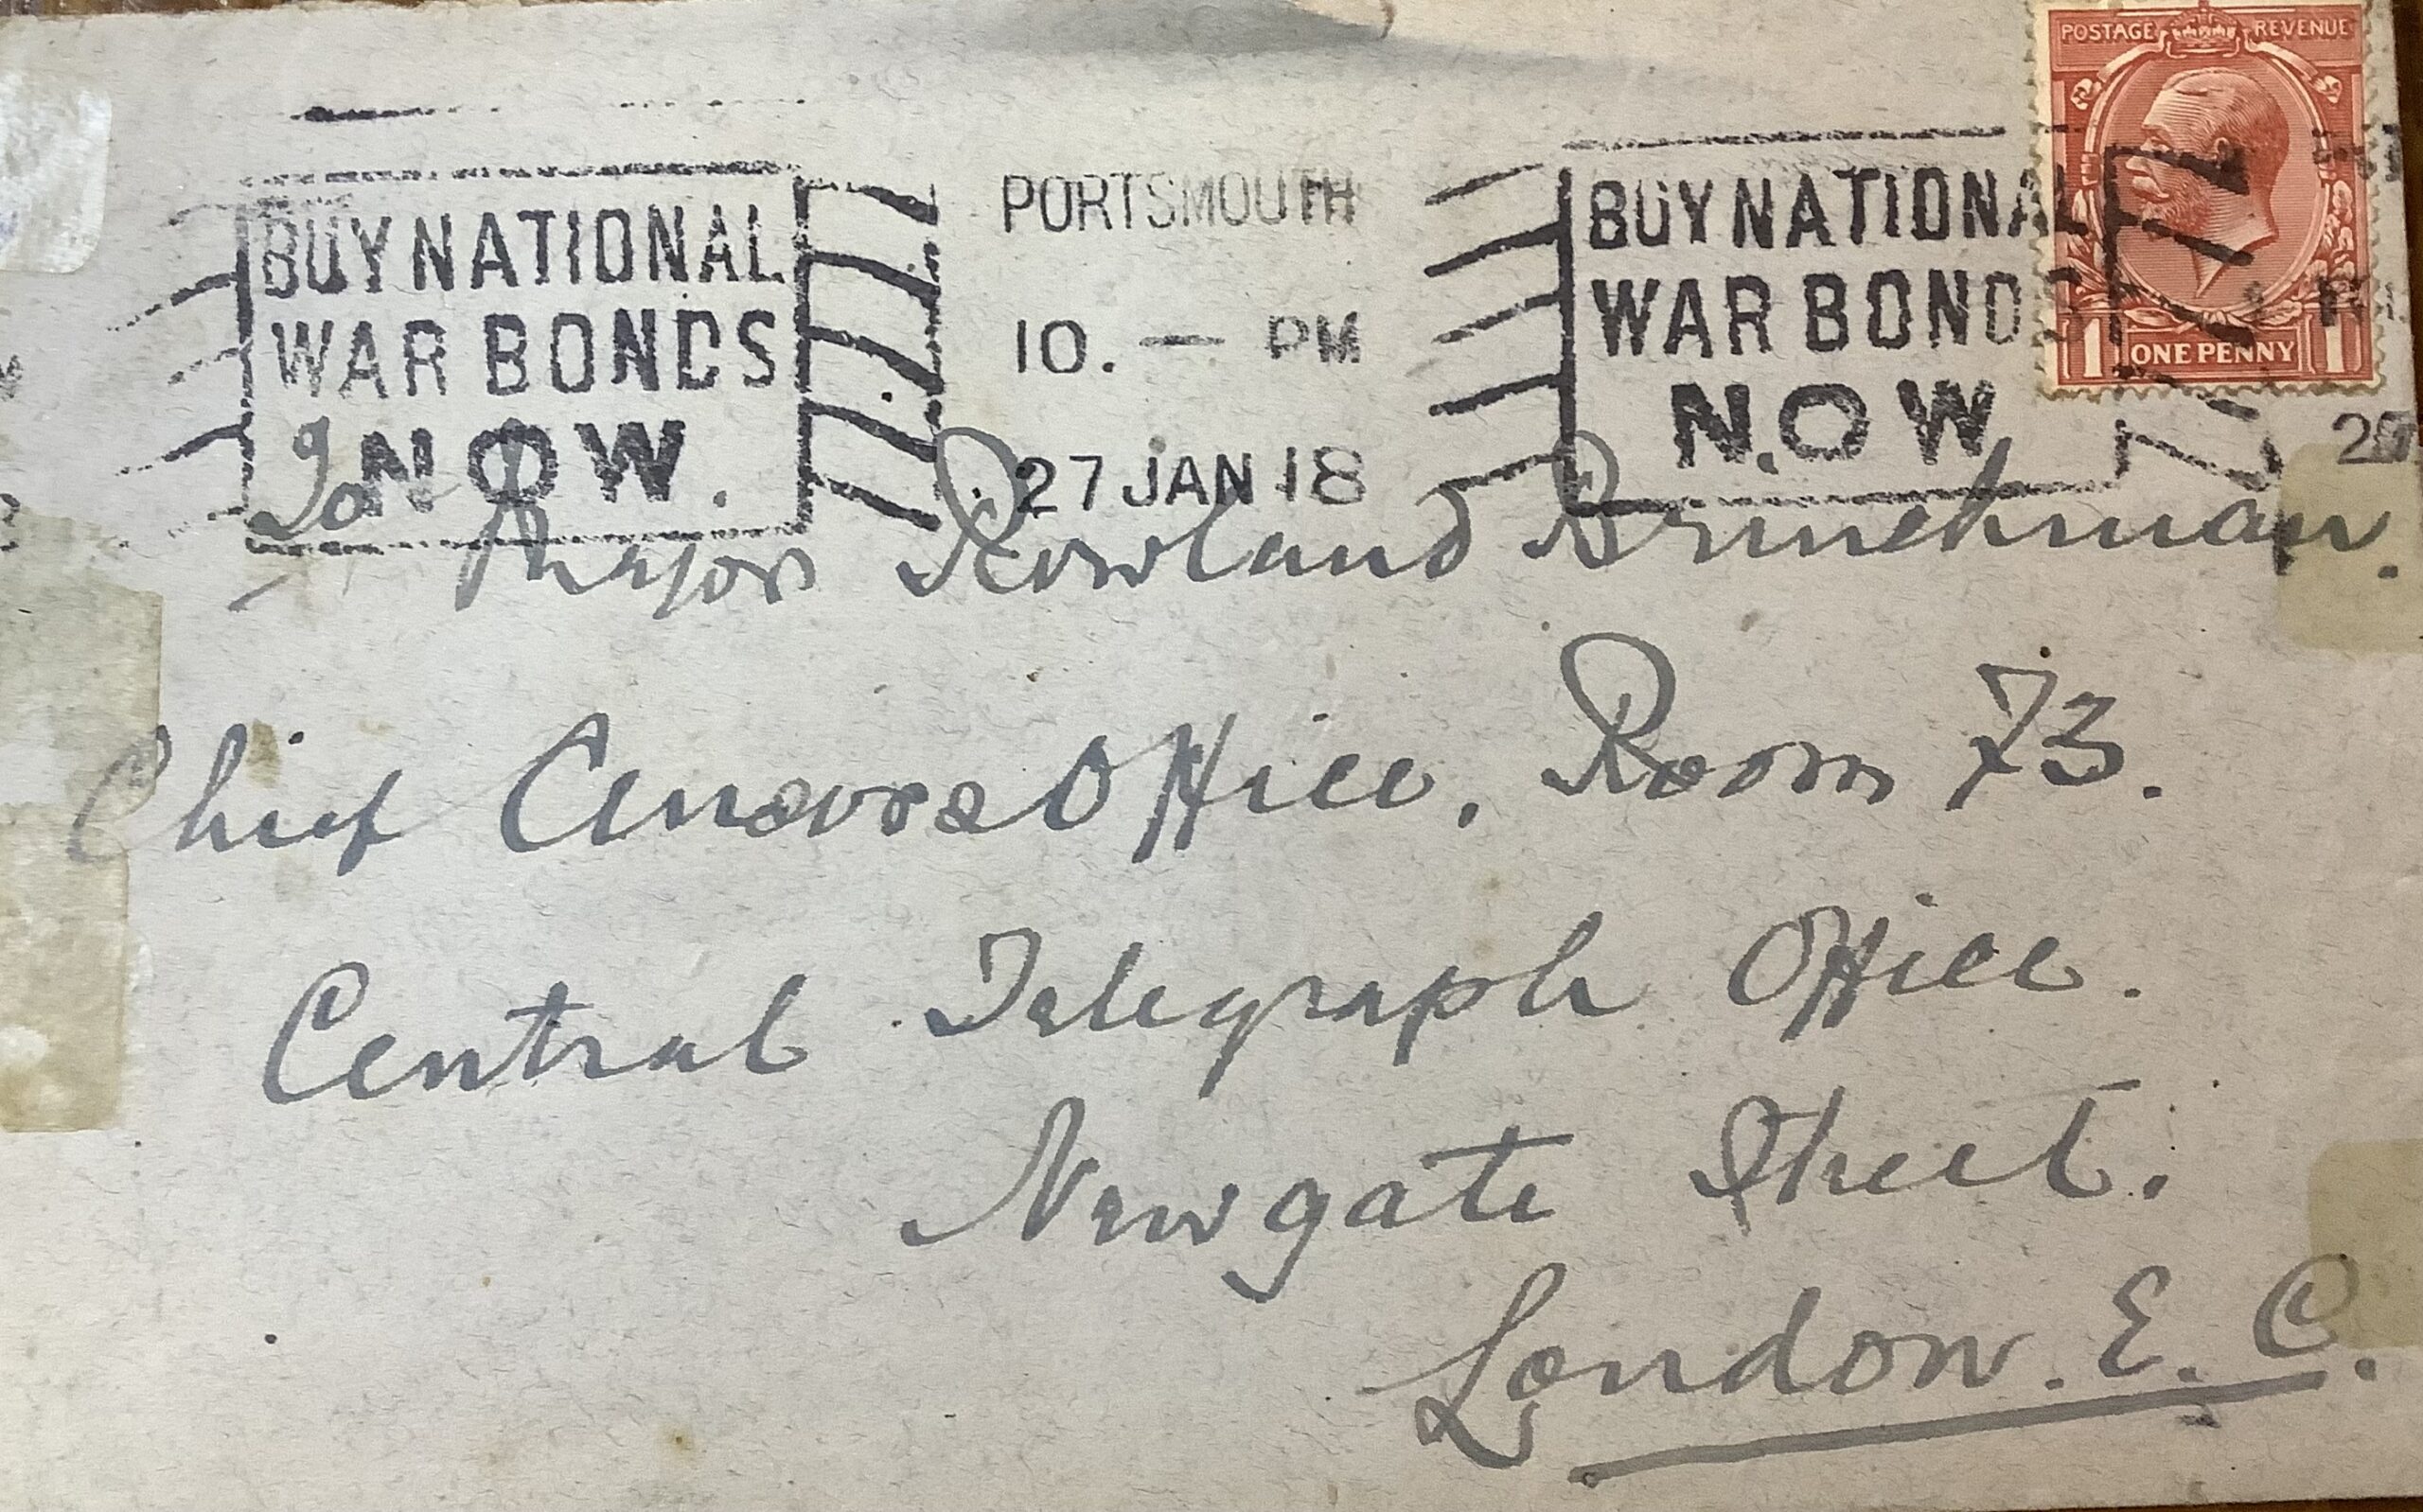 POSTAGE REVENUE
ONE PENNY
1 1
BUY NATIONAL
WAR BONDS
NOW.
PORTSMOUTH
10. — PM
27 JAN 18
BUY NATIONAL
WAR BONDS
NOW
To Major Rowland
Chief Censors Office, Room 73.
Central Telegraph Office.
Newgate Street.
London. E. C.